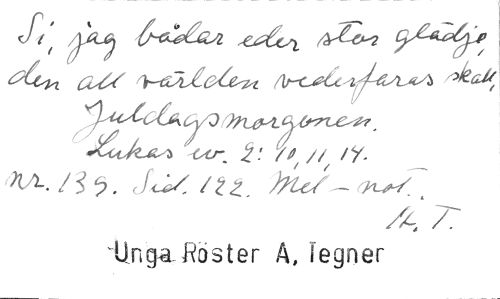 Si, jag bådar eder stor glädje,
den all världen vederfaras skall,
Juldagsmorgonen.
Lukas ev. 2: 10, 11, 14.
nr. 139. Sid. 122. Mel-not.
A. T.
Unga Röster A, Tegner